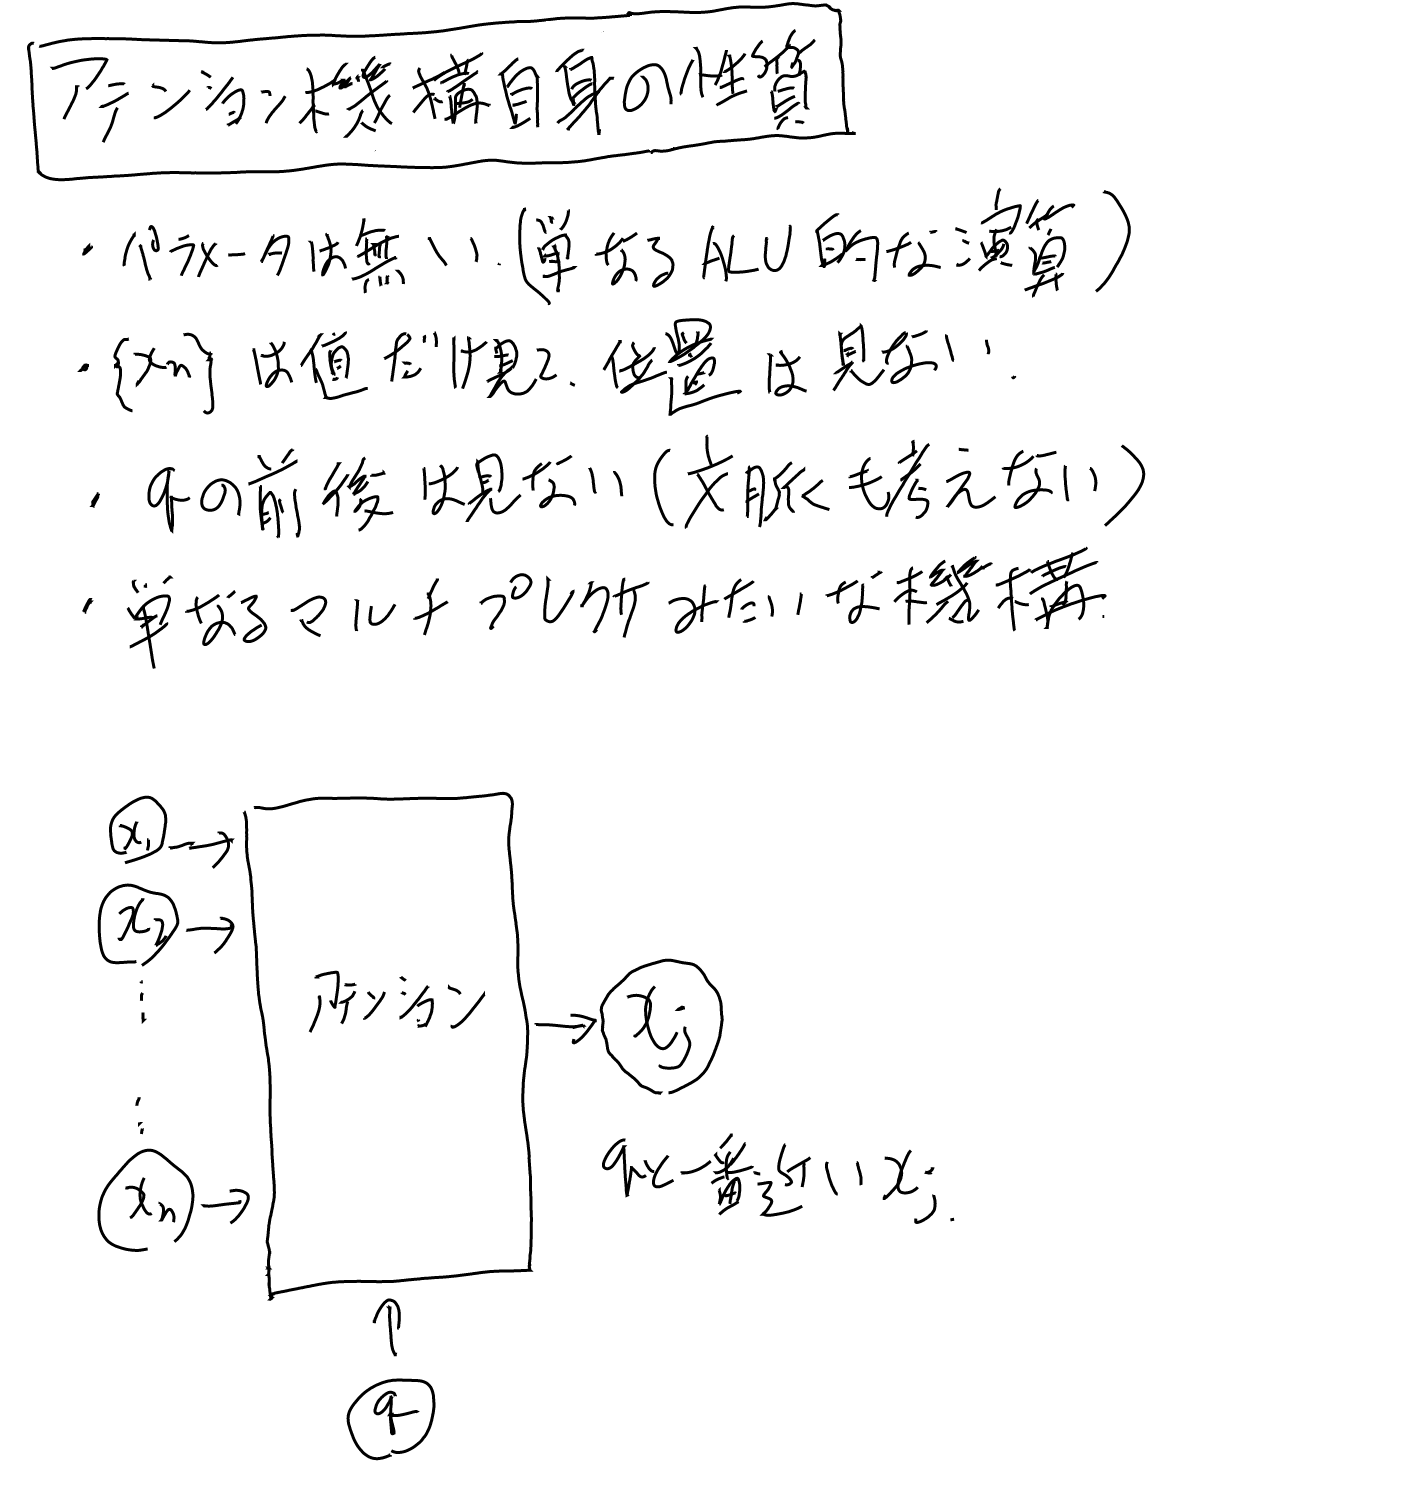 アテンション機構自身の性質
・パラメータは無い.(単なるALU的な演算)
・{xn}は値だけ見て、位置は見ない.
・qの前後は見ない(文脈も考えない)
・単なるマルチプレクサみたいな機構.
x1
x2
アテンション
xj
xn
qと一番近いxj.
q